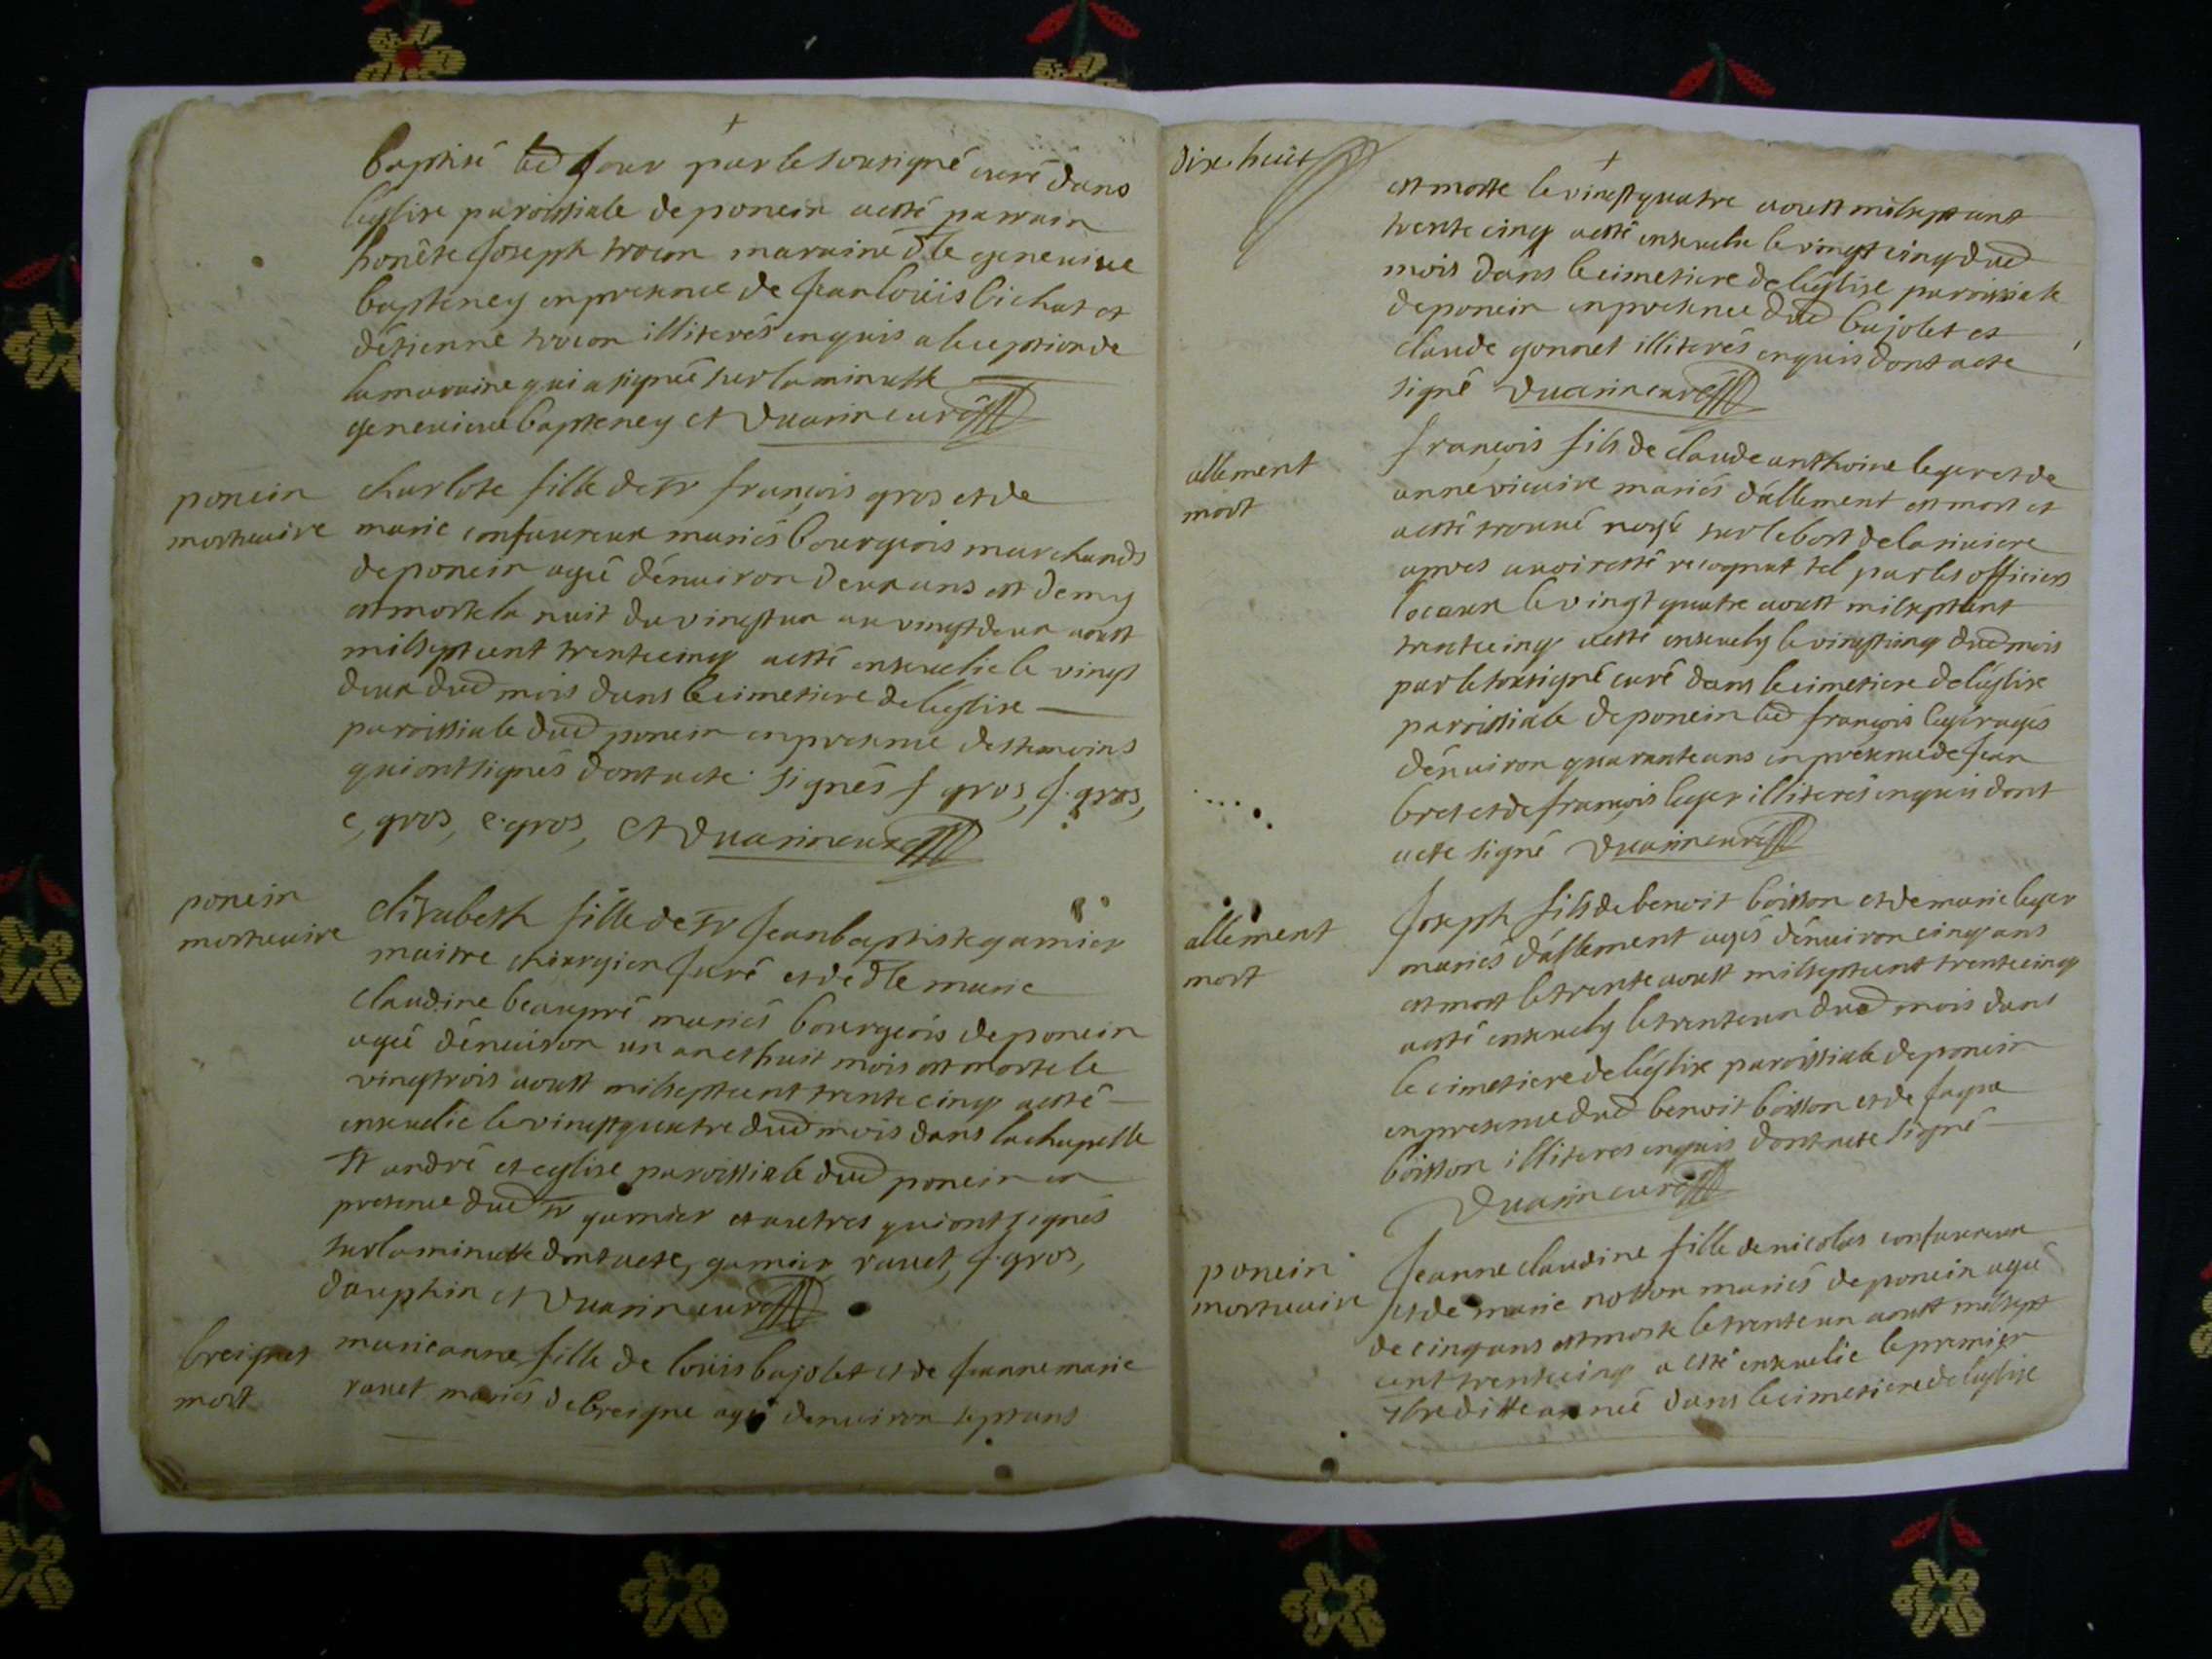 baptisé led jour par le sousigné curé dans
léglise paroissiale de poncin a esté parrain
honête Joseph trocon maraine dlle genevieve
bapteney en presence de Jean loüis bichat et
détienne trocon illiterés enquis a lexception de
la maraine qui a signée sur la minutte
genevieve bapteney et Duarin curé
poncin
mortuaire
charlote fille de sr françois gros et de
marie confavreux mariés bourgeois marchands
de poncin agée dénuiron deux ans et demy
est morte la nuit du vingt un au vingt deux aoust
mil sept cent trente cinq a esté ensevelie le vingt
deux dud mois dans le cimetiere de léglise
paroissiale dud poncin en presence des temoins
qui ont signés dont acte. signés f gros, J. gros,
c, gros, c. gros, et Duarin curé
poncin
mortuaire
elizabeth fille de sr Jean baptiste garnier
maitre chirurgien Juré et de dlle marie
claudine beaupré mariés bourgeois de poncin
agée dénuiron un an et huit mois est morte le
vingt trois aoust mil sept cent trente cinq a esté
ensevelie le vingt quatre dud mois dans la chapelle
st andré et eglise paroissiale dud poncin en
presence dud sr garnier et autres qui ont signés
sur la minutte dont acte, garnier ravet, J. gros,
dauphin et Duarin curé
breignes
mort
marie anne fille de loüis bajolet et de Jeanne marie
ravet mariés de breigne agée denuiron sept ans
dix-huit
est morte le vingt quatre aoust mil sept cent
trente cinq a esté ensevelie le vingt cinq dud
mois dans le cimetiere de léglise paroissiale
de poncin en presence dud bajolet et
claude gonnet illiterés enquis dont acte
signé Duarin curé
allement
mort
françois fils de claude anthoine leger et de
anne vicaire mariés d'allement est mort et
a esté trouvé noyé sur le bort de la riviere
apres avoir esté recognut tel par les officiers
locaux le vingt quatre aoust mil sept cent
trente cinq a esté ensevely le vingt cinq dud mois
par le sousigné curé dans le cimetiere de léglise
paroissiale de poncin led françois leger agés
dénuiron quarante ans en presence de Jean
bret et de françois leger illiterés enquis dont
acte signé Duarin curé
allement
mort
Joseph fils de benoit boisson et de marie leger
mariés d'allement agés dénuiron cinq ans
est mort le trente aoust mil sept cent trente cinq
a esté ensevely le trente un dud mois dans
le cimetiere de léglise paroissiale de poncin
en presence dud benoit boisson et de Jaque
boisson illiteres enquis dont acte signé
Duarin curé
poncin
mortuaire
Jeanne claudine fille de nicolas confavreux
et de marie notton mariés de poncin agée
de cinq ans est morte le trente un aoust mil sept
cent trente cinq a esté ensevelie le premier
7bre ditte année dans le cimetiere de léglise